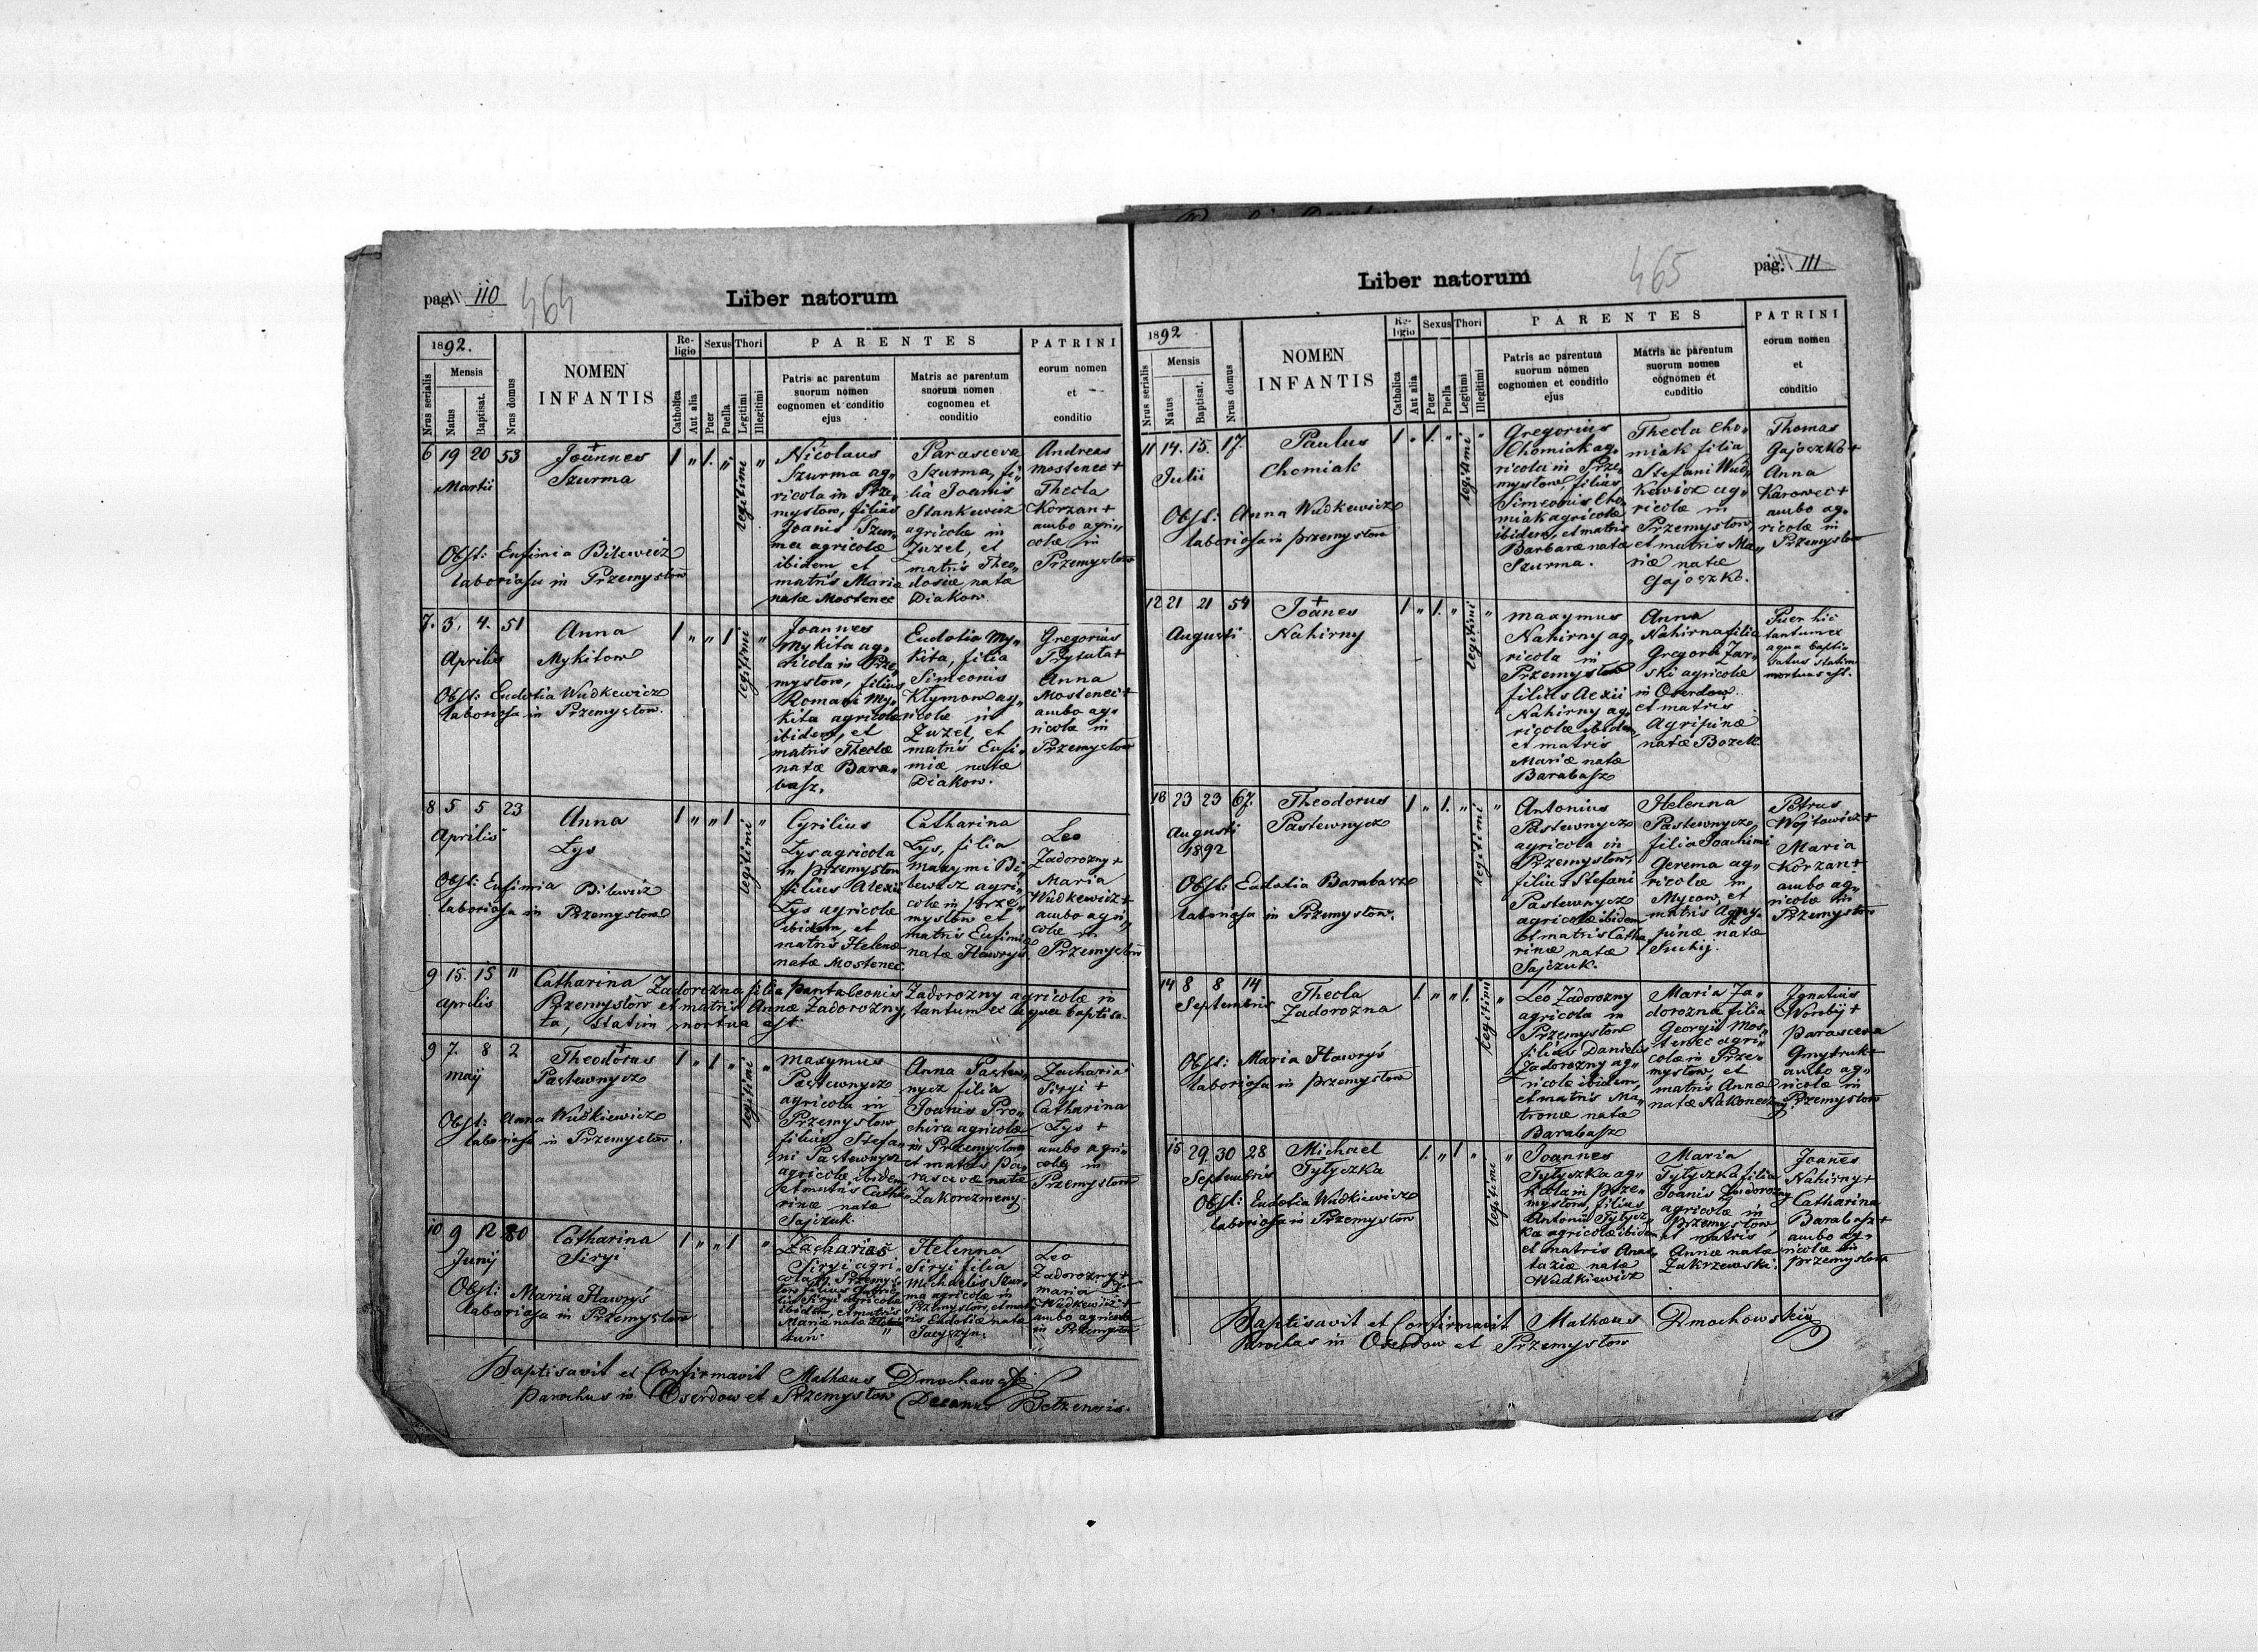 pag. 110
464
Liber natorum
1892.
Mensis
Nrus serialis
Natus
Baptisat.
Nrus domus
NOMEN
INFANTIS
Re-
ligio
Sexus
Thori
Catholica
Aut alia
Puer
Puella
Legitimi
Illegitimi
PARENTES
Patris ac parentum
suorum nomen
cognomen et conditio
ejus
Matris ac parentum
suorum nomen
cognomen et
conditio
PATRINI
eorum nomen
et
conditio
6 19 20 53
Martii
Joannes
Szurma
Obst: Eufimia Bilewicz
laboriosa in Przemysłow
1 „ 1. „ legitimi „
Nicolaus
Szurma ag„
ricola in Prze„
mysłow, filius
Joanis Szur„
ma agricolæ
ibidem et
matris Mariæ
natæ Mostenec
Parasceva
Szurma, fi„
lia Joanis
Stankewicz
agricolæ in
Żużel, et
matris Theo„
dosiæ natæ
Diakow.
Andreas
Mostenec +
Thecla
Korzan +
ambo agri„
colæ in
Przemysłow
7. 3. 4. 51
Aprilis
Anna
Mykitow
Obst: Eudotia Wudkewicz
laboriosa in Przemysłow.
1 „ „ 1 legitimi „
Joannes
Mykita ag„
ricola in Prze„
mysłow, filius
Romani My„
kita agricolæ
ibidem, et
matris Theclæ
natæ Bara„
basz.
Eudotia My„
kita, filia
Simeonis
Kłymow ag„
ricolæ in
Żużel, et
matris Eufi„
miæ natæ
Diakow.
Gregorius
Prytuła +
Anna
Mostenec +
ambo ag„
ricolæ in
Przemysłow
8 5 5 23
Aprilis
Anna
Lys
Obst: Eufimia Bilewicz
laboriosa in Przemysłow
1 „ „ 1 legitimi „
Cyrilius
Lys agricola
in Przemysłow
filius Alexii
Lys agricolæ
ibidem, et
matris Helenæ
natæ Mostenec.
Catharina
Lys, filia
Maxymi Bi„
lewicz agri„
colæ in Prze„
mysłow et
matris Eufimiæ
natæ Hawryś.
Leo
Zadorozny +
Maria
Wudkewicz +
ambo agri„
colæ in
Przemysłow
9 15. 15 „
Aprilis
Catharina Zadorozna filia Pantaleonis Zadorozny agricolæ in
Przemysłow et matris Annæ Zadorozny, tantum ex aqua baptisa„
ta, statim mortua est.
9 7. 8 2
Maij
Theodorus
Pastewnycz
Obst: Anna Wudkiewicz
laboriosa in Przemysłow.
1 „ 1 „ legitimi „
Maxymus
Pastewnycz
agricola in
Przemysłow
filius Stefa„
ni Pastewnycz
agricolæ ibidem
et matris Catha„
rinæ natæ
Sajczuk.
Anna Pastew„
nycz filia
Joanis Pro„
chira agricolæ
in Przemysłow
et matris Pa„
rascevæ natæ
Zakorzmeny.
Zacharia
Siryi +
Catharina
Lys +
ambo agri„
colæ in
Przemysłow
10 9 12 80
Junij
Catharina
Siryi
Obst: Maria Hawryś
laboriosa in Przemysłow
1 „ „ 1 „
Zacharias
Siryi agri„
cola in Przemys„
łow filius
Siryi agricolæ
ibidem, et matris
Mariæ natæ
Helenna
Siryi filia
Michaelis Szur„
ma agricolæ in
Przemysłow, et mat„
ris Eudotiæ natæ
Jacyszyn.
Leo
Zadorozny +
Maria
Wudkewicz +
ambo agricolæ
in Przemysłow
Baptisavit et Confirmavit Mathæus
Parochus in Oserdow et Przemysłow Decanus Bełzensis.
pag. 111
465
Liber natorum
1892
Mensis
Nrus serialis
Natus
Baptisat.
Nrus domus
NOMEN
INFANTIS
Re-
ligio
Sexus
Thori
Catholica
Aut alia
Puer
Puella
Legitimi
Illegitimi
PARENTES
Patris ac parentum
suorum nomen
cognomen et conditio
ejus
Matris ac parentum
suorum nomen
cognomen et
conditio
PATRINI
eorum nomen
et
conditio
11 14. 15. 17.
Julii
Paulus
Chomiak
Obst: Anna Wudkewicz
laboriosa in Przemysłow
1 „ 1. „ legitimi „
Gregorius
Chomiak ag„
ricola in Prze„
mysłow, filius
Simeonis Cho„
miak agricolæ
ibidem, et matris
Barbaræ natæ
Szurma.
Thecla Cho„
miak filia
Stefani Wud„
kewicz ag„
ricolæ in
Przemysłow,
et matris Ma„
riæ natæ
Gajoszko.
Thomas
Gajoczko +
Anna
Karowec +
ambo ag„
ricolæ in
Przemysłow
12 21 21 54
Augusti
Joanes
Nahirny
1 „ 1. „ legitimi „
Maxymus
Nahirny ag„
ricola in
Przemysłow
filius Alexii
Nahirny ag„
ricolæ ibidem,
et matris
Mariæ natæ
Barabasz
Anna
Nahirna filia
Gregorii Zar„
ski agricolæ
in Oserdow
et matris
Agrifinæ
natæ Bozek.
Puer hic
tantum ex
aqua bapti„
satus statim
mortuus est.
13 23 23 67.
Augusti
1892
Theodorus
Pastewnycz
Obst: Eudotia Barabasz
laboriosa in Przemysłow.
1 „ 1. „ legitimi „
Antonius
Pastewnycz
agricola in
Przemysłow,
filius Stefani
Pastewnycz
agricolæ ibidem
et matris Catha„
rinæ natæ
Sajczuk.
Helenna
Pastewnycz,
filia Joachimi
Gerema ag„
ricolæ in
Mycow, et
matris Agry„
pinæ natæ
Suchij.
Petrus
Wojtowicz +
Maria
Korzan +
ambo ag„
ricolæ in
Przemysłow
14 8 8 14
Septembris
Thecla
Zadorozna
Obst: Maria Hawryś
laboriosa in Przemysłow
1. „ „ 1. legitimi „
Leo Zadorozny
agricola in
Przemysłow
filius Danielis
Zadorozny ag„
ricolæ ibidem,
et matris Ma„
tronæ natæ
Barabasz
Maria Za„
dorozna filia
Georgii Mos„
tenec agri„
colæ in Prze„
mysłow, et
matris Annæ
natæ Nakoneczny.
Ignatius
Worobij +
Parasceva
Gmytruk +
ambo ag„
ricolæ in
Przemysłow
15 29. 30 28
Septembris
Michael
Tytyczka
Obst: Eudotia Wudkiewicz
laboriosa in Przemysłow
1. „ 1 „ legitimi „
Joannes
Tytyszka ag„
ricola in Prze„
mysłow, filius
Antonii Tytycz„
ka agricolæ ibidem
et matris Anas„
taziæ natæ
Wudkiewicz
Maria
Tytyszka filia
Joanis Zadorozny
agricolæ in
Przemysłow,
et matris
Annæ natæ
Zakrzewski.
Joanes
Nahirny +
Catharina
Barabasz +
ambo ag„
ricolæ in
Przemysłow
Baptisavit et Confirmavit Mathæus Dmochowskij
Parochus in Oserdow et Przemysłow